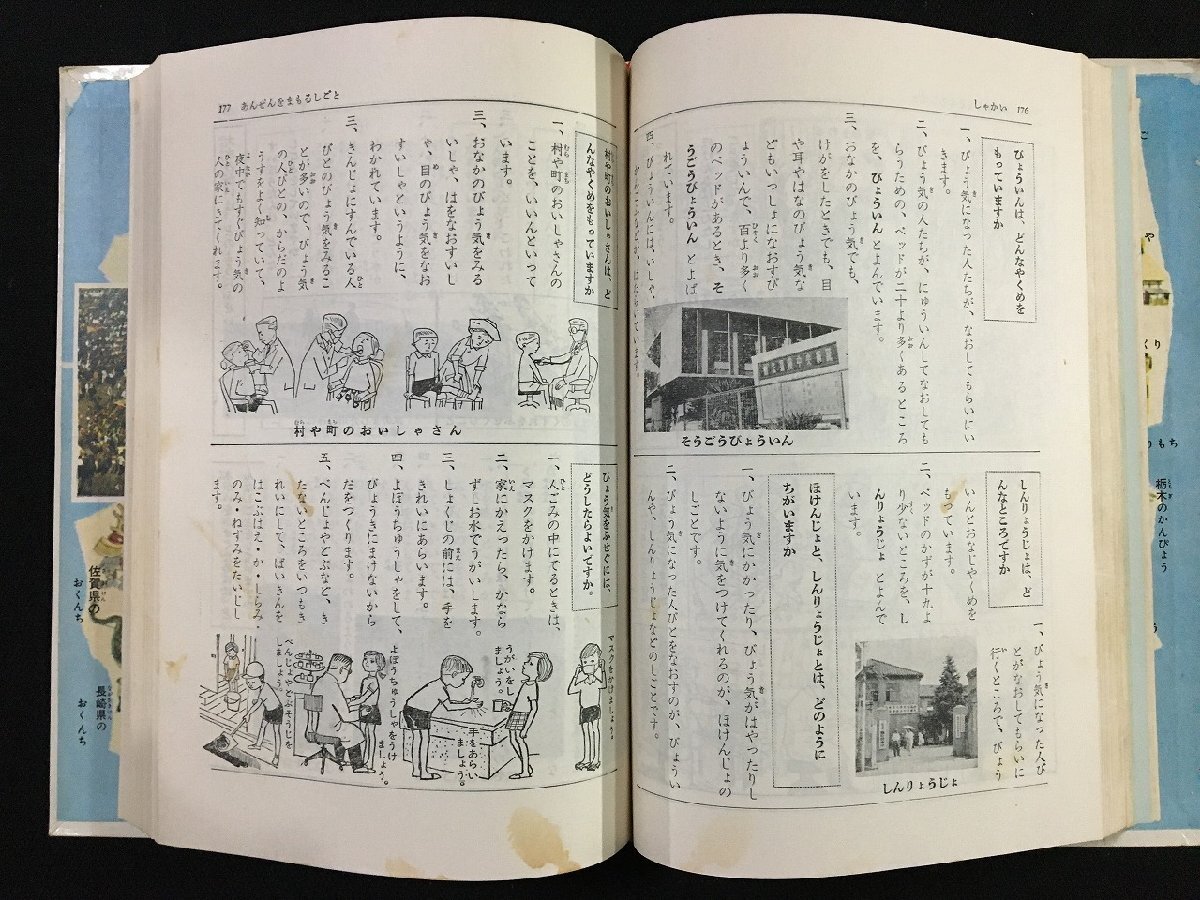 しゃかい 176
びょういんは、どんなやくめを
もっていますか
一、びょう気になった人たちが、なおしてもらいにい
きます。
二、びょう気の人たちが、にゅういんしてなおしても
らうための、ベッドが二十より多くあるところ
を、びょういんとよんでいます。
三、おなかのびょう気でも、
けがをしたときでも、目
や耳やはなのびょう気な
どもいっしょになおすび
ょういんで、百より多く
のベッドがあるとき、そ
うごうびょういんとよば
れています。
四、びょういんには、いしゃ、
そうごうびょういん
しんりょうじょは、ど
んなところですか
一、びょう気になった人び
とがなおしてもらいに
行くところで、びょう
いんとおなじやくめを
もっています。
二、ベッドのかずが十九よ
り少ないところを、し
んりょうじょとよんで
います。
しんりょうじょ
ほけんじょと、しんりょうじょとは、どのように
ちがいますか
一、びょう気にかかったり、びょう気がはやったりし
ないように気をつけてくれるのが、ほけんじょの
しごとです。
二、びょう気になった人びとをなおすのが、びょうい
んや、しんりょうじょなどのしごとです。
177 あんぜんをまもるしごと
村や町のおいしゃさんは、ど
んなやくめをもっていますか
一、村や町のおいしゃさんの
ことを、いいんといって
います。
二、おなかのびょう気をみる
いしゃ、はをなおすいし
ゃ、目のびょう気をなお
すいしゃというように、
わかれています。
三、きんじょにすんでいる人
びとのびょう気をみるこ
とが多いので、びょう気
の人びとの、からだのよ
うすをよく知っていて、
夜中でもすぐびょう気の
人の家にきてくれます。
村や町のおいしゃさん
びょう気をふせぐには、
どうしたらよいですか。
一、人ごみの中にでるときは、
マスクをかけます。
二、家にかえったら、かなら
ずお水でうがいします。
三、しょくじの前には、手を
きれいにあらいます。
四、よぼうちゅうしゃをして、
びょうきにまけないから
だをつくります。
五、べんじょやどぶなど、き
たないところをいつもき
れいにして、ばいきんを
はこぶはえ・か・しらみ・
のみ・ねずみをたいじし
ます。
マスクをかけましょう。
うがいをし
ましょう。
手をあらい
ましょう。
よぼうちゅうしゃをうけ
ましょう。
べんじょやどぶそうじを
しましょう。
佐賀県の
おくんち
長崎県の
おくんち
栃木のかんぴょう